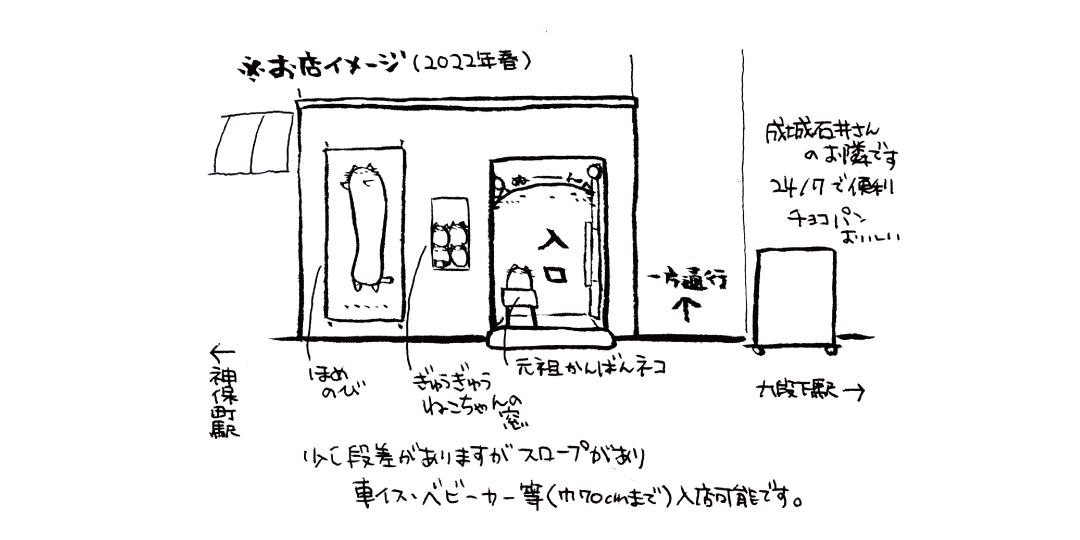 ※お店イメージ(2022年春)
成城石井さん
のお隣です
24/7で便利
チョコパン
おいしい
ぬーん
入
口
一方通行
↑
←
神保町駅
ほめ
のび
ぎゅうぎゅう
ねこちゃんの
窓
元祖かんばんネコ
九段下駅→
少し段差がありますがスロープがあり
車イス・ベビーカー等(巾70cmまで)入店可能です。